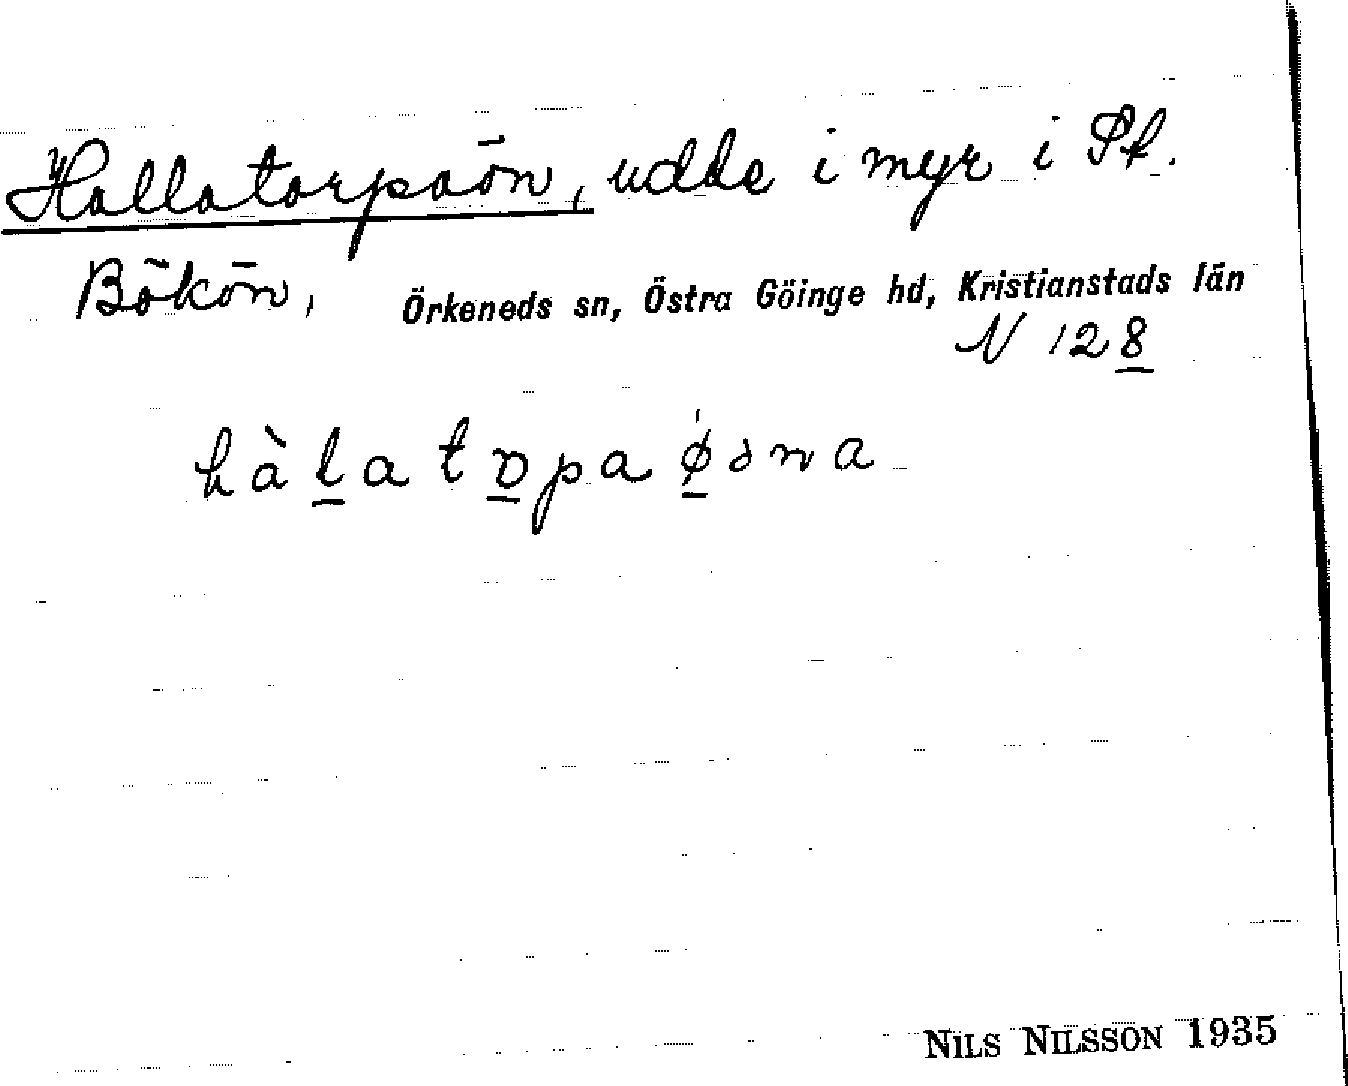 Hallatorpaön, udde i myr i St.
Bökön, Örkeneds sn, Östra Göinge hd, Kristianstads län
N 128
hàlatɒpa øəna
NILS NILSSON 1935